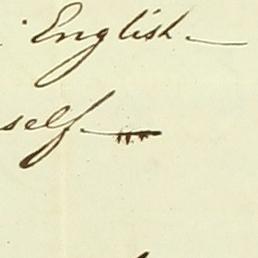 English
self